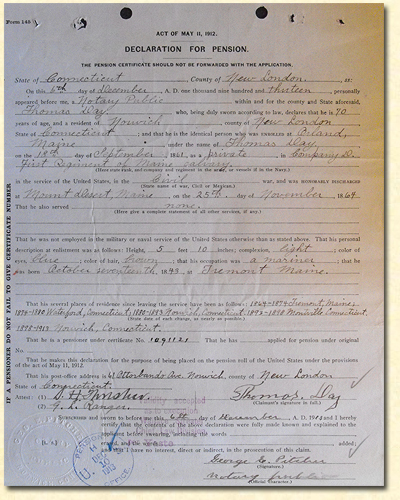 Form 145
ACT OF MAY 11, 1912.
DECLARATION FOR PENSION.
THE PENSION CERTIFICATE SHOULD NOT BE FORWARDED WITH THE APPLICATION.
State of Connecticut, County of New London, ss:
On this 6th day of December, A. D. one thousand nine hundred and thirteen, personally
appeared before me, a Notary Public within and for the county and State aforesaid,
Thomas Day, who, being duly sworn according to law, declares that he is 70
years of age, and a resident of Norwich county of New London
State of Connecticut; and that he is the identical person who was ENROLLED at Orland,
Maine under the name of Thomas Day,
on the day of September, 1861, as a private in Company D.
First Regiment Maine Calvary
(Here state rank, and company and regiment in the Army, or vessel if in the Navy.)
in the service of the United States, in the Civil war, and was HONORABLY DISCHARGED
(State name of war, Civil or Mexican.)
at Mount Desert, Maine, on the 25th day of November, 1864
That he also served none.
(Here give a complete statement of all other services, if any.)
That he was not employed in the military or naval service of the United States otherwise than as stated above. That his personal
description at enlistment was as follows: Height, 5 feet 10 inches; complexion, light; color of
eyes, blue; color of hair, brown; that his occupation was a mariner; that he
was born October seventeenth, 1843, at Tremont Maine.
That his several places of residence since leaving the service have been as follows: 1864-1874 Tremont, Maine,
1874-1880 Waterford, Connecticut, 1880-1893 Norwich, Connecticut, 1893-1898 Montville Connecticut,
(State date of each change, as nearly as possible.)
1898-1913 Norwich, Connecticut.
That he is a pensioner under certificate No. That he has applied for pension under original
No.
That he makes this declaration for the purpose of being placed on the pension roll of the United States under the provisions
of the act of May 11, 1912.
That his post-office address is Ave. Norwich, county of New London
State of Connecticut.
Attest: (1) Thomas Day
(Claimant's signature in full.)
(2)
Subscribed and sworn to before me this 6th day of December, A. D. and I hereby
certify that the contents of the above declaration were fully made known and explained to the
applicant before swearing, including the words
added;
and that I have no interest, direct or indirect, in the prosecution of this claim.
George C.
(Signature.)
Notary Public
IF A PENSIONER DO NOT FAIL TO GIVE CERTIFICATE NUMBER